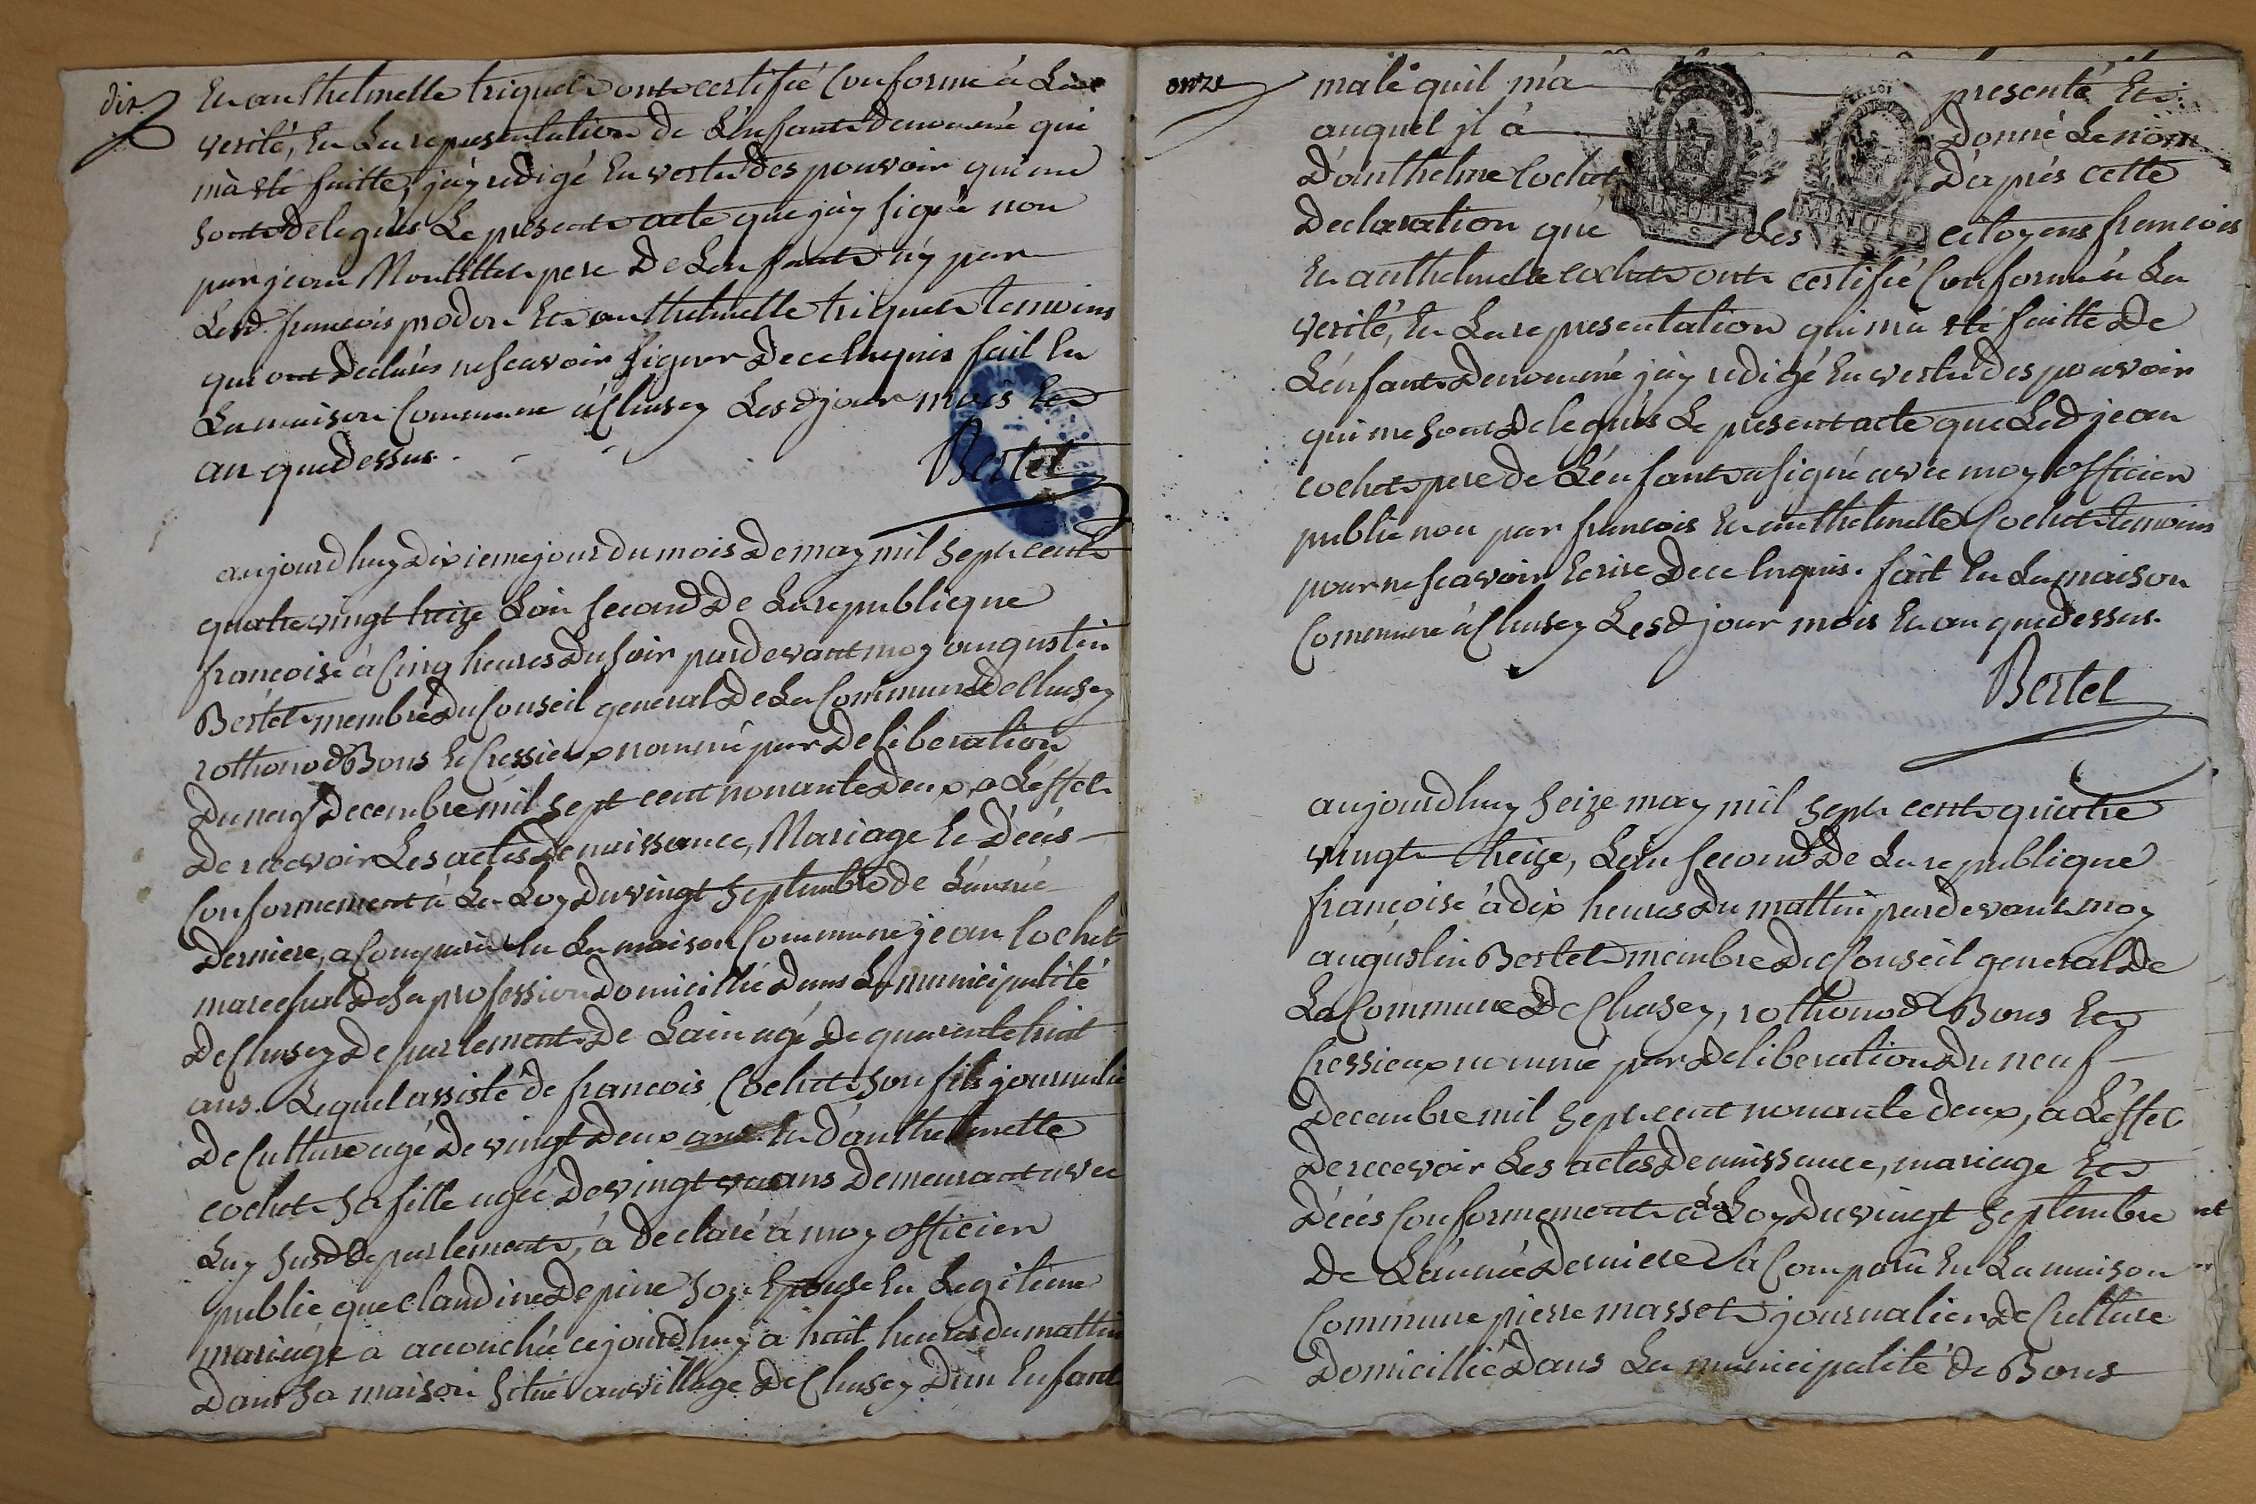 dix
Et anthelmette triquet ont certifié Conforme à La
verité, Et La representation de L'enfant denommé qui
m'a eté faitte, j'ay redigé En vertu des pouvoir qui me
sont delegués Le present acte que j'ay signé non
par jean Montillet pere de L'enfant n'y par
Lesd. francois prodon Et anthelmette triquet temoins
qui ont declarés ne scavoir signer de ce Enquis fait En
La maison Commune à Chusey Lesd jour mois Et
an que dessus.
Bertet
aujourdhuy dixieme jour du mois de may mil sept cent
quatre vingt treize L'an second de La republique
francoise à Cinq heures du soir pardevant moy augustin
Bertet membre du Conseil general de La Commune de Chusey
rothonod Bons Et Cressieux nommé par deliberation
du neuf decembre mil sept cent nonante deux, a L'effet
de recevoir Les actes de naissance, Mariage Et Décés
Conformement à La Loy du vingt septembre de L'année
derniere, a Comparu En La maison Commune jean Cochet
marechal de sa profession domicillié dans La municipalité
de Chusey departement de Lain agé de quarante huit
ans. Lequel assisté de francois Cochet son fils journalie
de Culture agé de vingt deux ans Et d'anthelmette
cochet sa fille agée de vingt un ans demeurant avec
Luy susd departement, à declaré à moy officier
public que claudine depine son Epouse En Legitime
mariage a accouchée cejourdhuy a huit heures du mattin
dans sa maison située au village de Chusey d'un Enfant
onze
male quil m'a presenté Et
auquel jl à donné Le nom
D'anthelme Cochet D'après cette
declaration que Les citoyens francois
Et anthelmette cochet ont certifié Conforme à La
verité, Et La representation qui m'a eté faitte de
L'enfant denommé j'ay redigé En vertu des pouvoir
qui me sont delegués Le present acte que Led jean
cochet pere de L'enfant a signé avec moy officier
public non par francois Et anthelmette Cochet temoins
pour ne scavoir Ecrire de ce Enquis. fait En La maison
Commune à Chusey Lesd jour mois Et an que dessus.
Bertet
aujourdhuy seize may mil sept cent quatre
vingt treize, L'an second de La republique
françoise à dix heures du mattin pardevant moy
augustin Bertet membre du Conseil general de
La Commune de Chusey, rothonod Bons Et
Cressieux nommé par deliberation du neuf
decembre mil sept cent nonante deux, a L'effet
de recevoir Les actes de naissance, mariage Et
Décés Conformement à La Loy du vingt septembre
de L'année derniere à Comparu En La maison
Commune pierre masset journalier de Culture
domicillié dans La municipalité de Bons